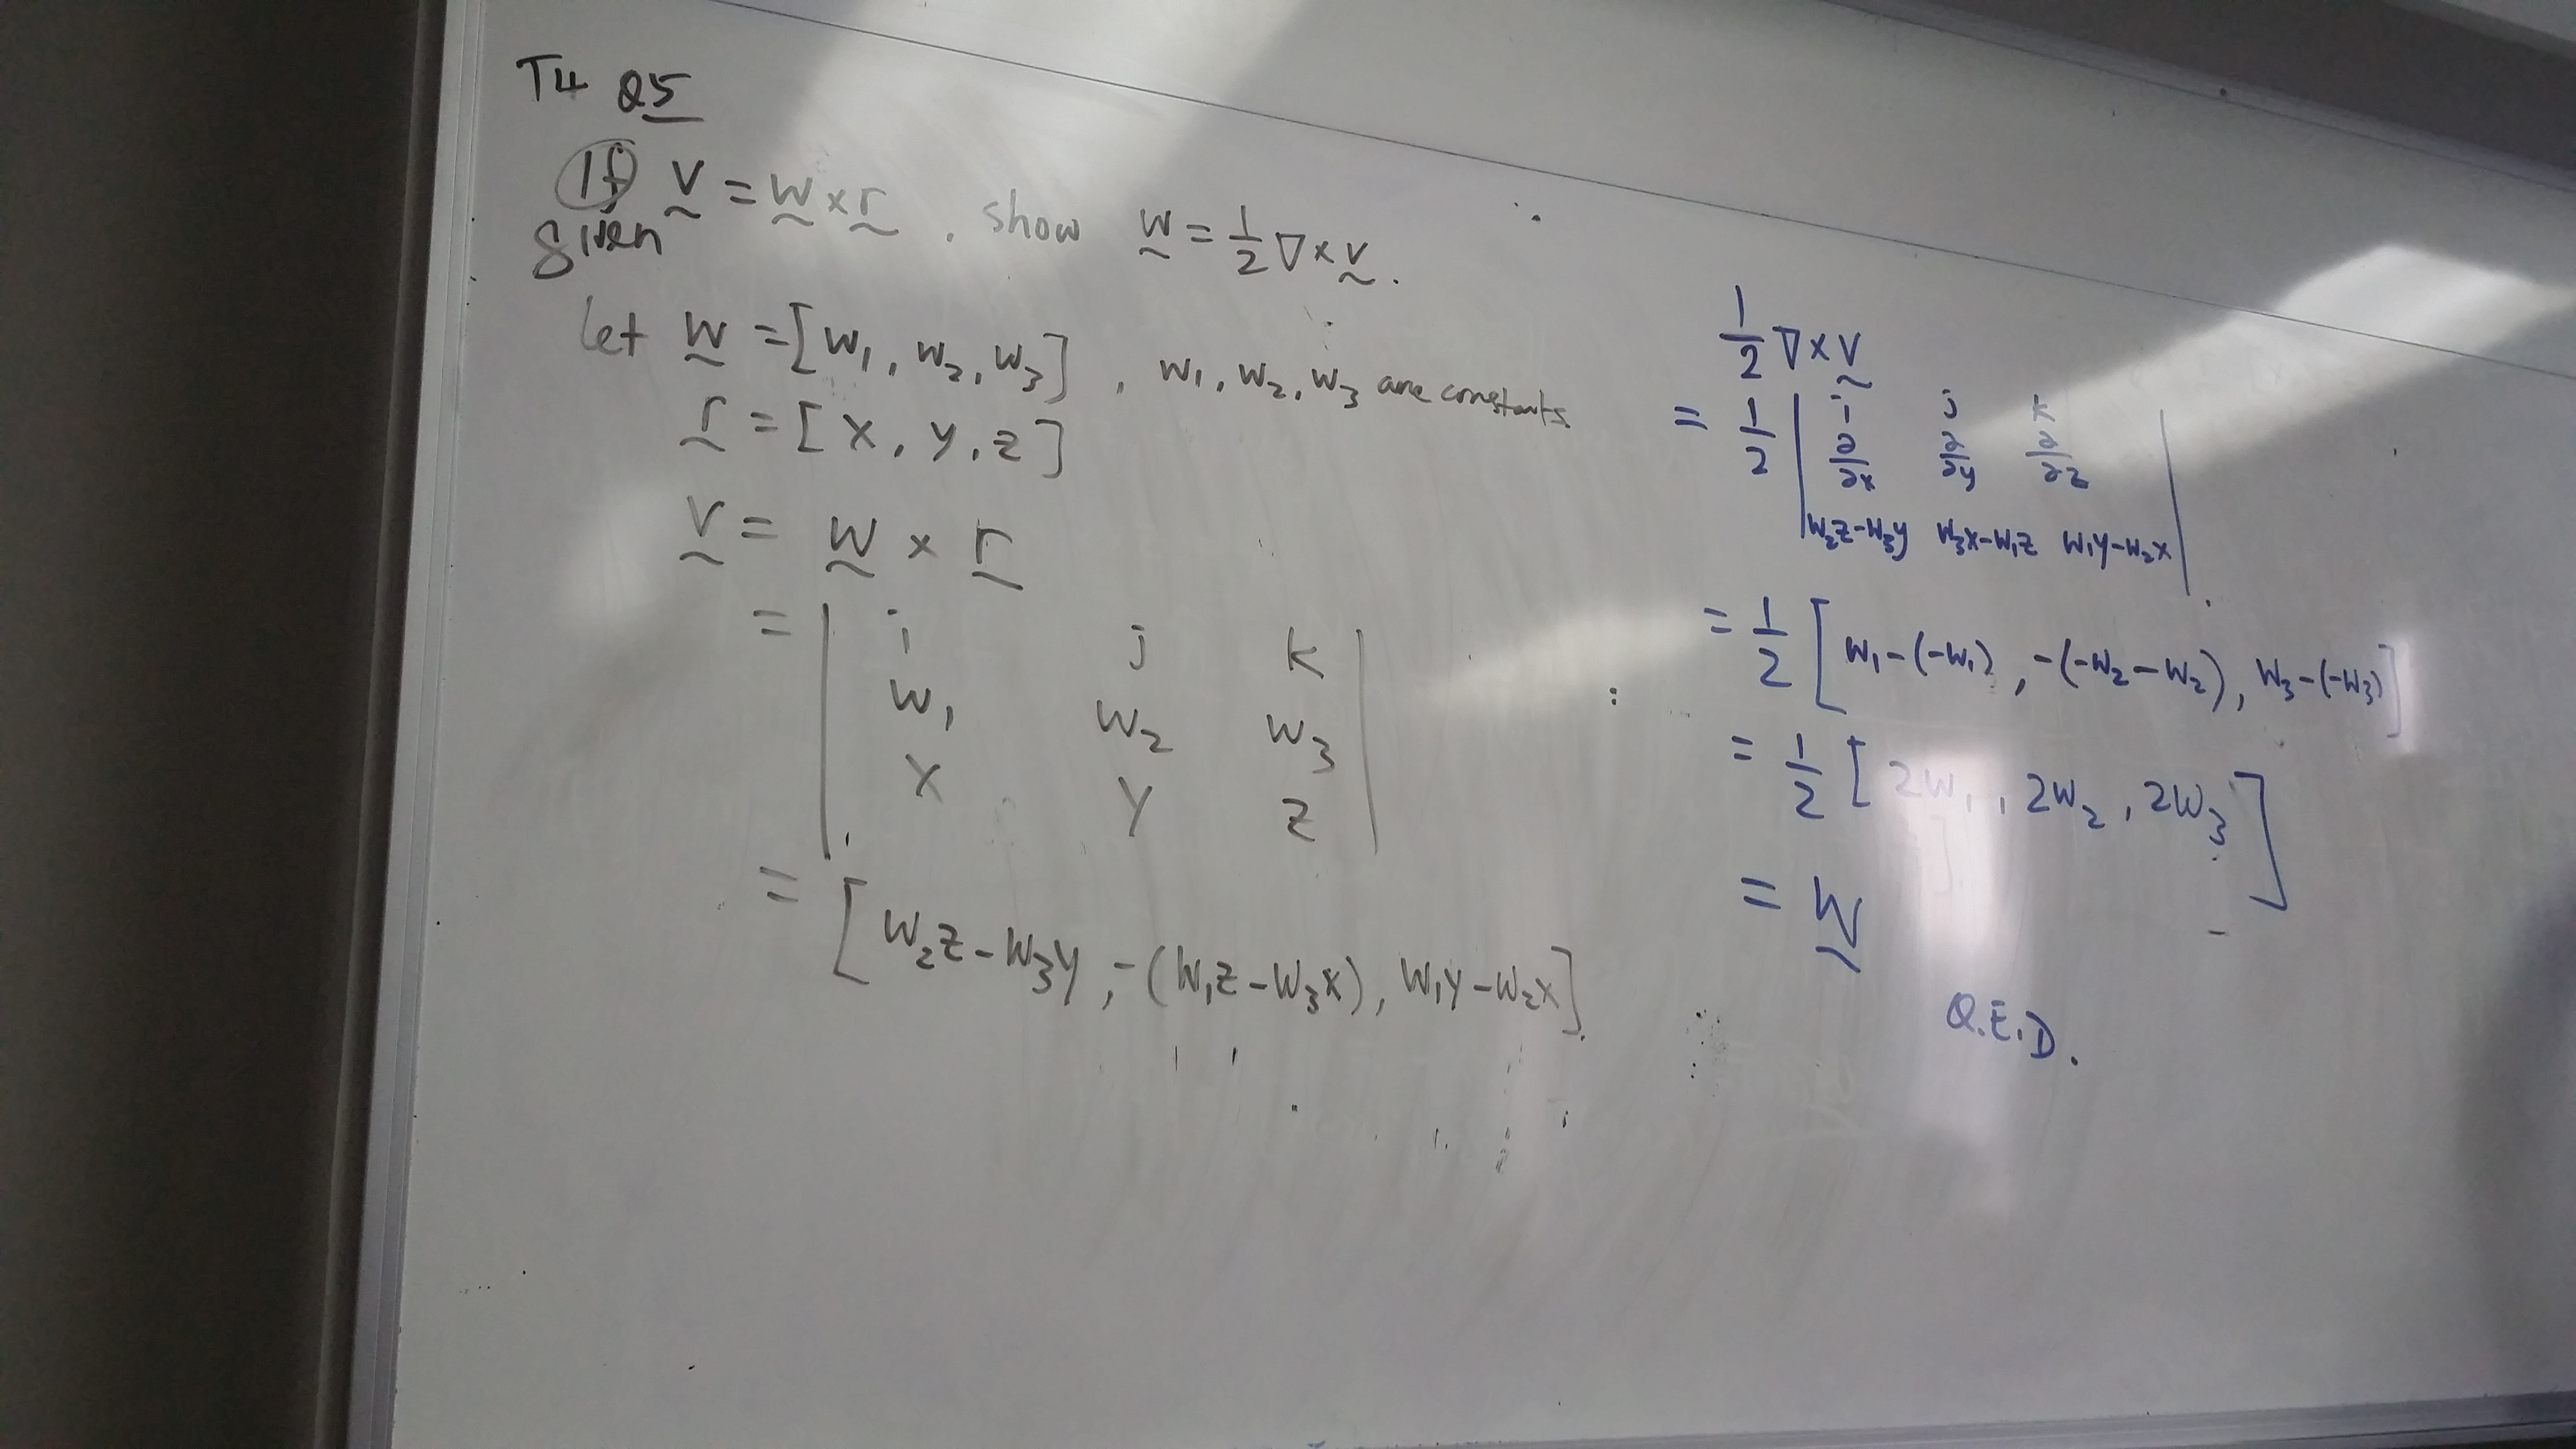 T4 Q5
If v = w × r , show w = 1/2 ∇ × v .
given
let w = [w₁, w₂, w₃] , w₁, w₂, w₃ are constants
r = [x, y, z]
v = w × r
= | i j k
w₁ w₂ w₃
x y z |
= [w₂z - w₃y, -(w₁z - w₃x), w₁y - w₂x]
1/2 ∇ × v
= 1/2 | i j k
∂/∂x ∂/∂y ∂/∂z
w₂z-w₃y w₃x-w₁z w₁y-w₂x |
= 1/2 [w₁-(-w₁), -(-w₂-w₂), w₃-(-w₃)]
= 1/2 [2w₁, 2w₂, 2w₃]
= w
Q.E.D.